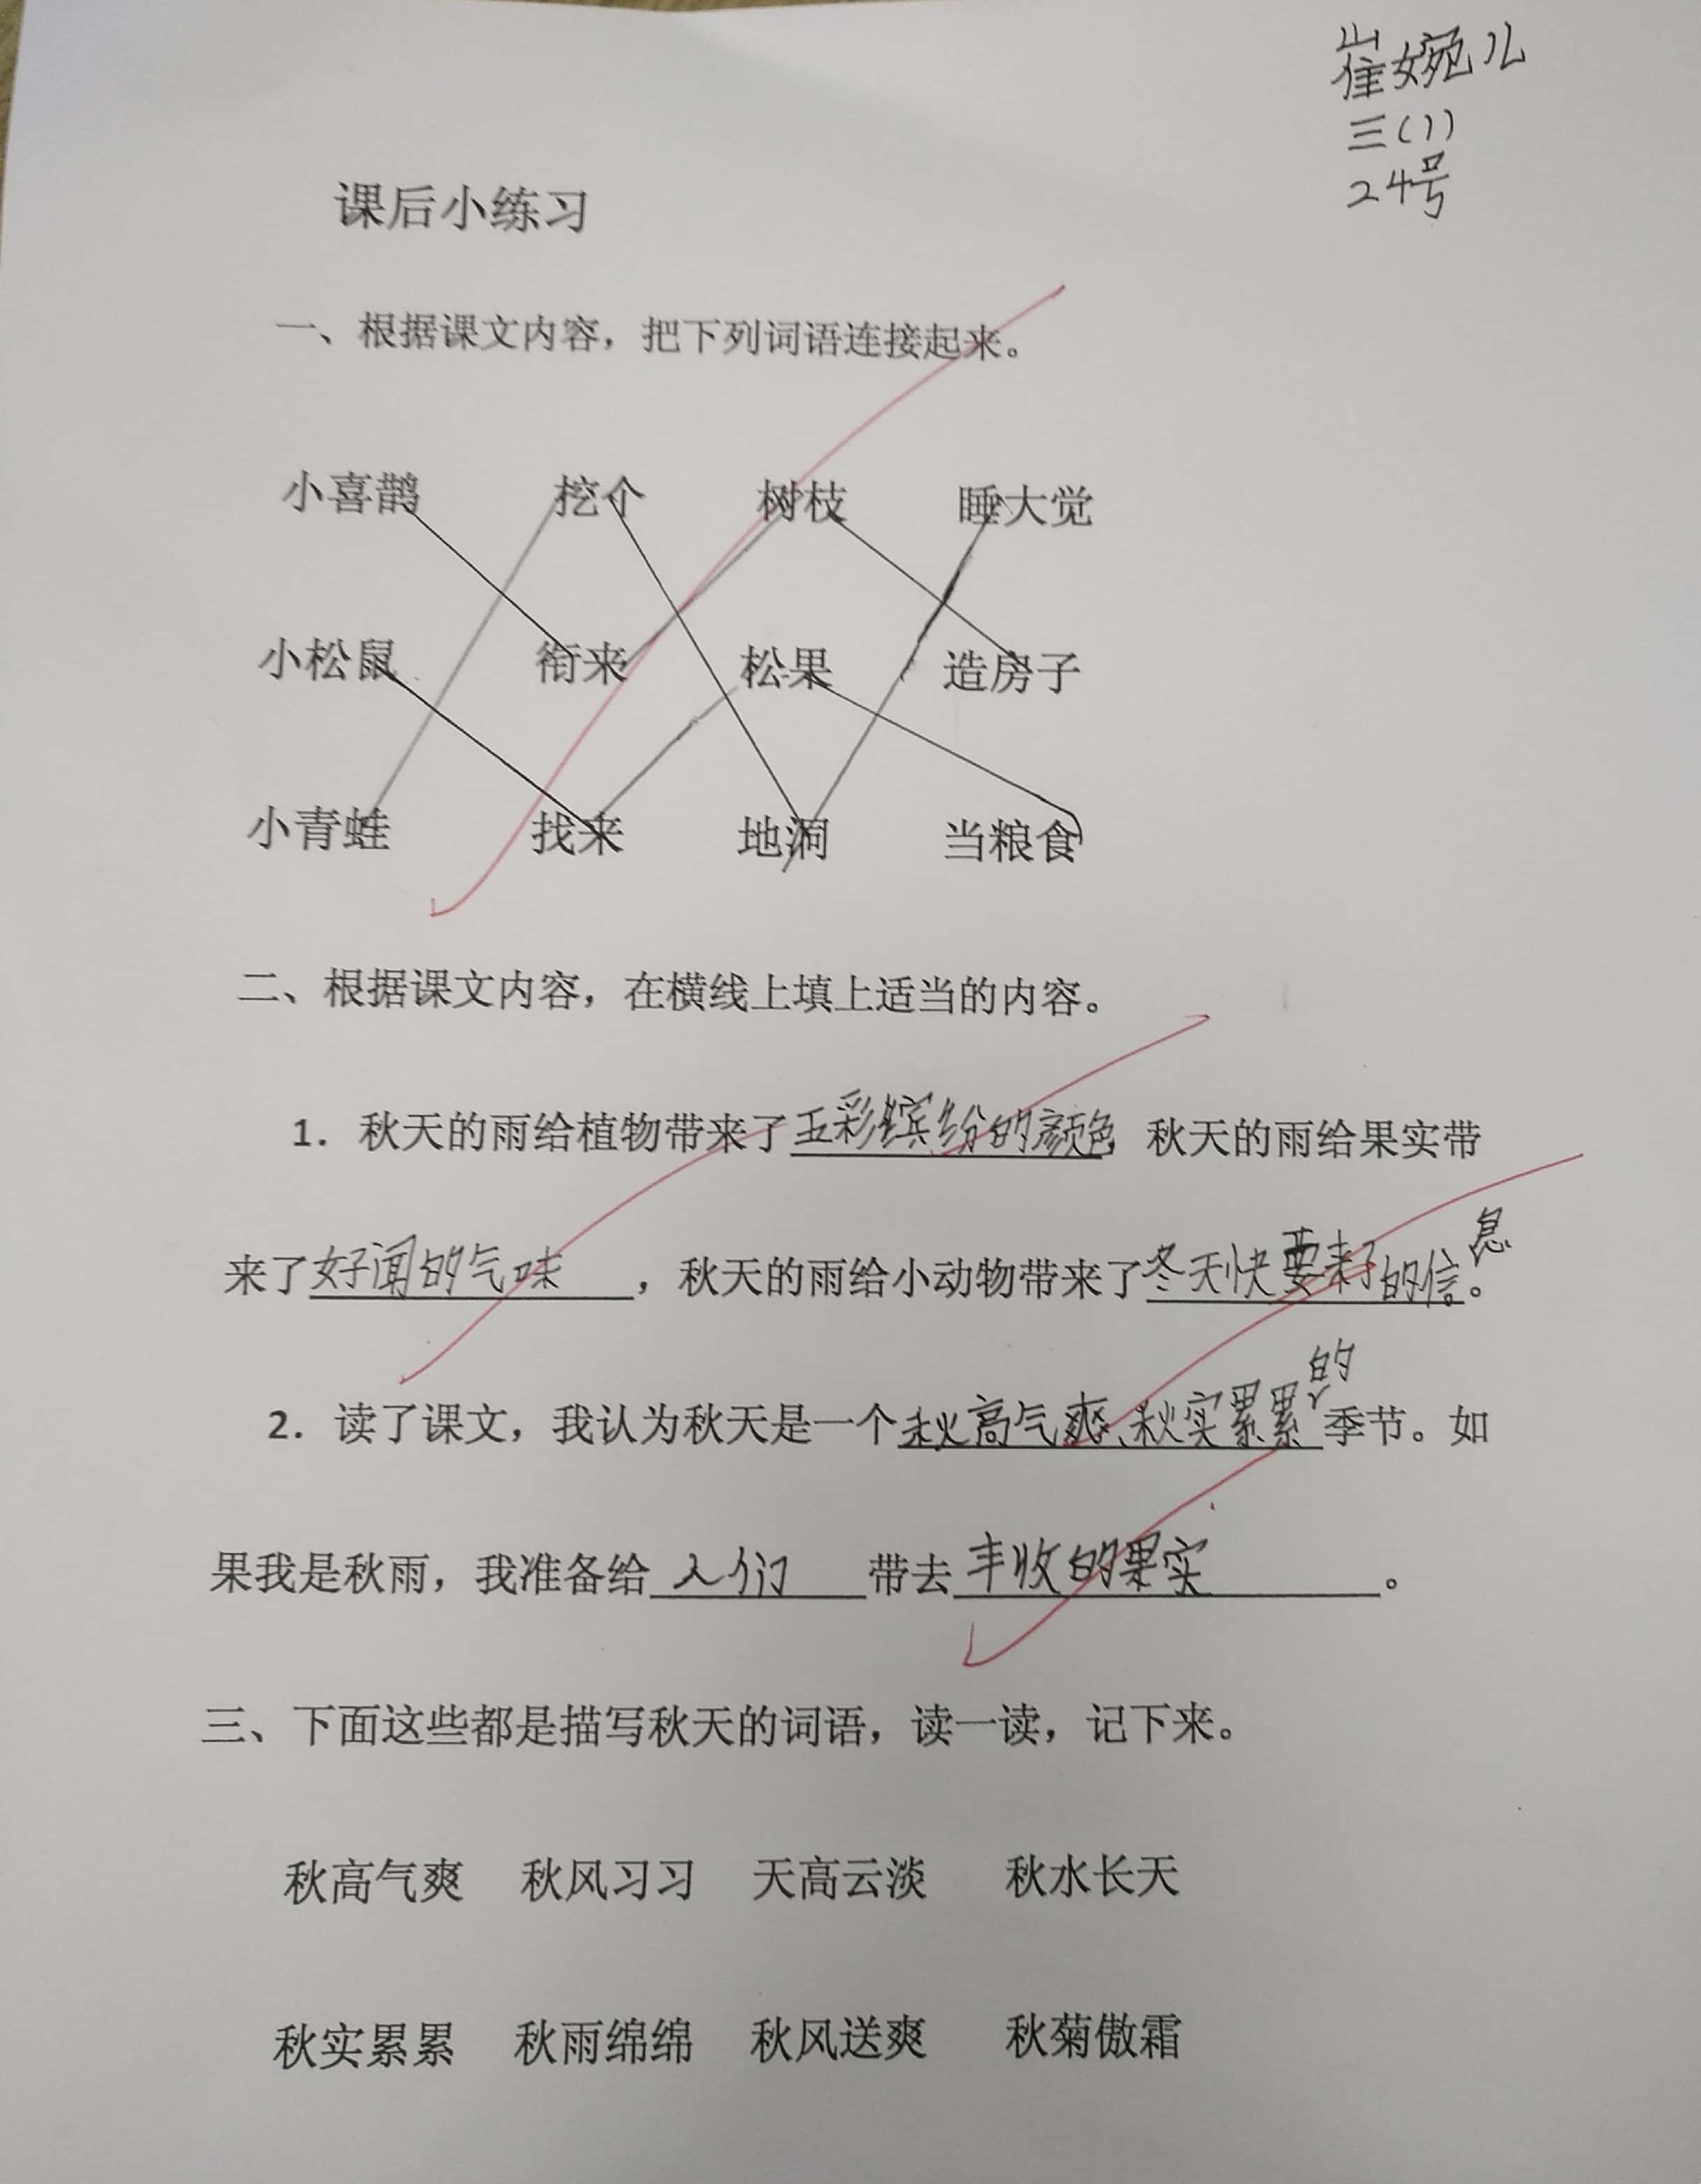 崔婉儿
三(1)
24号
课后小练习
一、根据课文内容，把下列词语连接起来。
小喜鹊 挖个 树枝 睡大觉
小松鼠 衔来 松果 造房子
小青蛙 找来 地洞 当粮食
二、根据课文内容，在横线上填上适当的内容。
1. 秋天的雨给植物带来了五彩缤纷的颜色，秋天的雨给果实带
来了好闻的气味，秋天的雨给小动物带来了冬天快要来了的信息。
2. 读了课文，我认为秋天是一个秋高气爽、秋实累累的季节。如
果我是秋雨，我准备给人们带去丰收的果实。
三、下面这些都是描写秋天的词语，读一读，记下来。
秋高气爽 秋风习习 天高云淡 秋水长天
秋实累累 秋雨绵绵 秋风送爽 秋菊傲霜